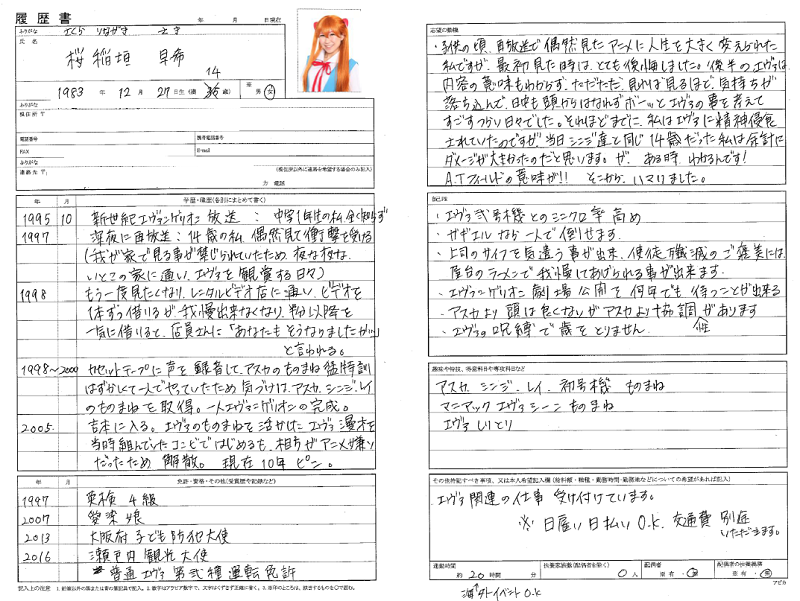 履歴書
年 月 日現在
ふりがな さくら いながき さき
氏名
桜 稲垣 早希
14
1983 年 12 月 27 日生(満 歳)
男 女
ふりがな
現住所 〒
電話番号
携帯電話番号
FAX
E-mail
ふりがな
連絡先 〒
(現住所以外に連絡を希望する場合のみ記入)
方 電話
年 月 学歴・職歴(各別にまとめて書く)
1995 10 新世紀エヴァンゲリオン 放送 : 中学1年生の私 全く知らず
1997 深夜に再放送:14歳の私、偶然見て衝撃を受ける
(我が家で見る事が禁じられていたため、夜な夜な
いとこの家に通い、エヴァを観賞する日々)
1998 もう一度見たくなり、レンタルビデオ店に通い、ビデオを
1本ずつ借りるが我慢出来なくなり、
一気に借りると、店員さんに「あなたもそうなりましたかッ」
と言われる。
1998〜2000 カセットテープに声を録音して、アスカのものまね猛特訓
はずかしくて一人でやっていたため気づけば、アスカ、シンジ、レイ
のものまねを取得。一人エヴァンゲリオンの完成。
2005 吉本に入る。エヴァのものまねを活かしたエヴァ漫才を
当時組んでいたコンビではじめるも、相方がアニメが嫌い
だったため 解散。 現在10年ピン。
年 月 免許・資格・その他(受賞歴や記録など)
1997 英検 4級
2007 愛染娘
2013 大阪府子ども防犯大使
2016 瀬戸内観光大使
* 普通エヴァ 第弐種運転免許
志望の動機
・子供の頃、再放送で偶然見たアニメに人生を大きく変えられた
私ですが、最初見た時は、とても後悔しました。後半のエヴァは
内容の意味もわからず、ただただ、見れば見るほど、気持ちが
落ち込んで、日中も頭からはなれずボーッとエヴァの事を考えて
すごすつらい日々でした。それほどまでに、私はエヴァに精神侵食
されていたのですが、当日シンジ達と同じ14歳だった私は余計に
ダメージが大きかったのだと思います。が、ある時、わかるんです!
A.T.フィールドの意味が!! そこから、ハマりました。
自己PR
・エヴァ弐号機とのシンクロ率高め
・ガギエルなら一人で倒せます。
・上司のサイフを気遣う事が出来、使徒殲滅のご褒美には、
屋台のラーメンで我慢してあげられる事が出来ます。
・エヴァンゲリオン劇場公開を何年でも待つことが出来る
・アスカより頭は良くないがアスカより協調性があります
・エヴァの呪縛で歳をとりません
趣味や特技、得意科目や専攻科目など
アスカ シンジ、レイ、初号機 ものまね
マニアックエヴァシーン ものまね
エヴァしりとり
その他特記すべき事項、又は本人希望記入欄(給料額・職種・勤務時間・勤務地などについての希望があれば記入)
エヴァ関連の仕事 受け付けています。
※ 日雇い 日払い O.k. 交通費 別途
いただきます。
通勤時間
約 20 時間 分
扶養家族数(配偶者を除く)
0 人
配偶者
有・無
配偶者の扶養義務
有・無
海外イベント O.k